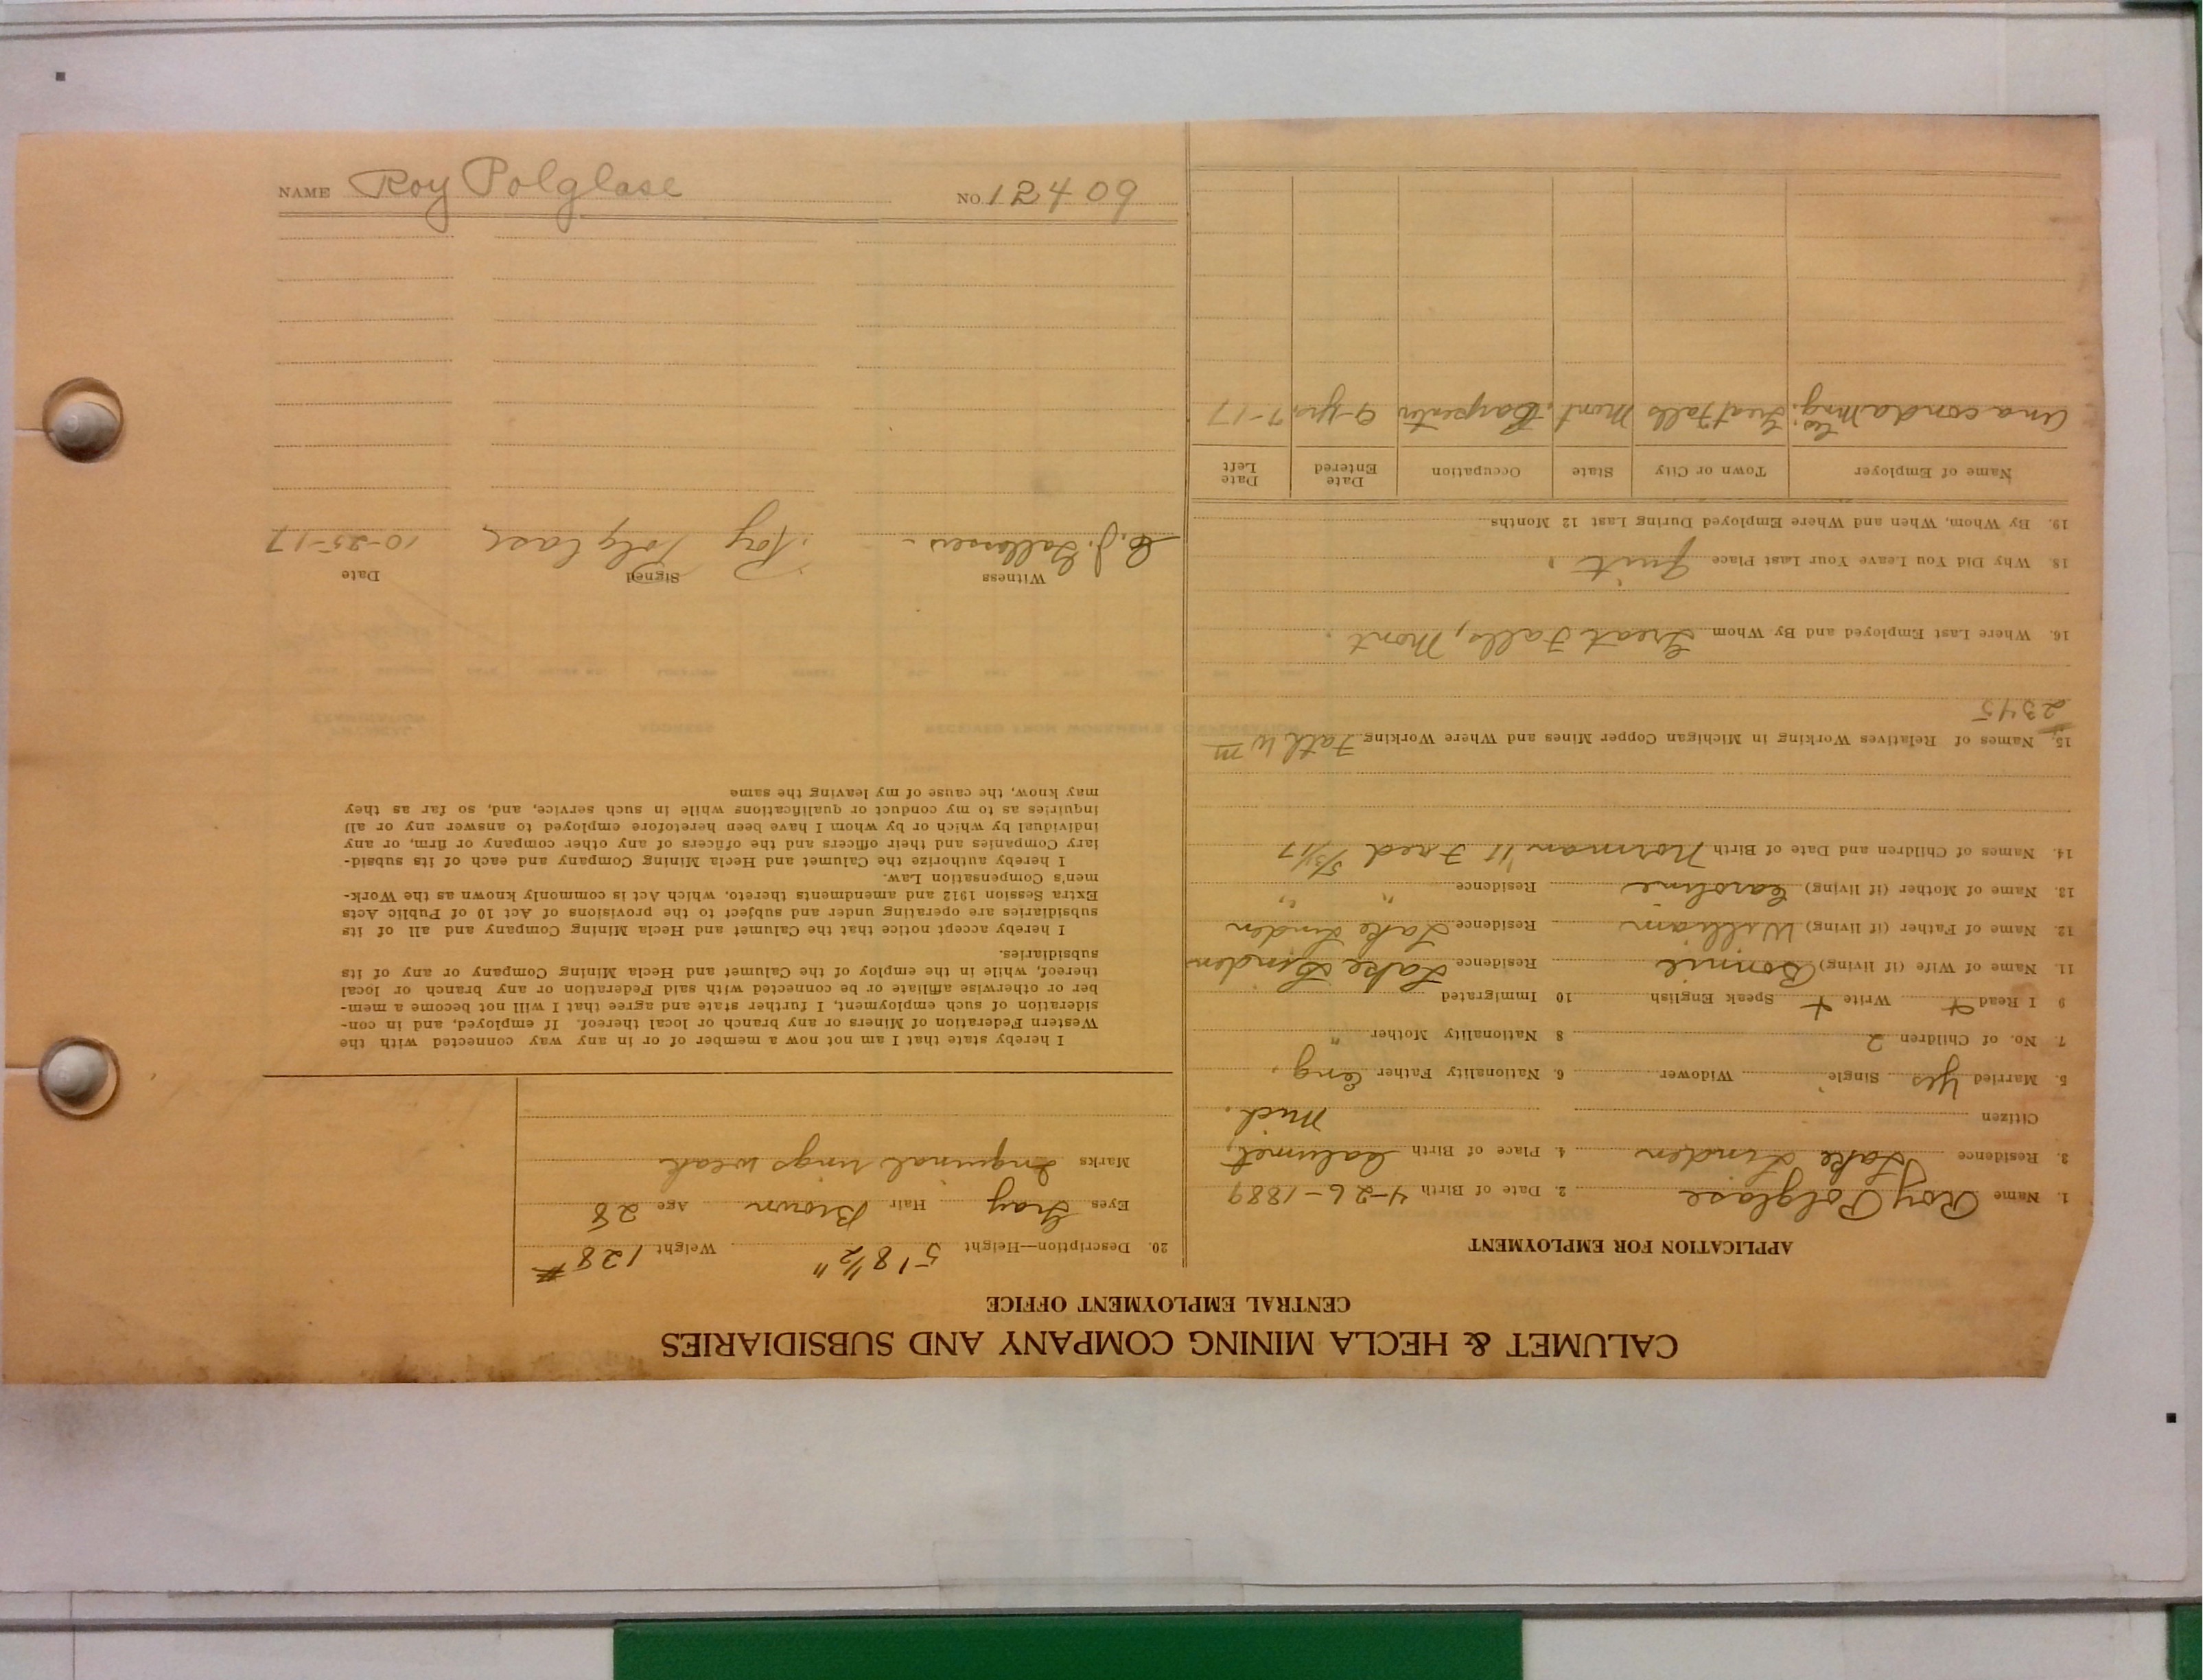 NAME Roy Polglase NO. 12409
CALUMET & HECLA MINING COMPANY AND SUBSIDIARIES
CENTRAL EMPLOYMENT OFFICE
APPLICATION FOR EMPLOYMENT
1. Name Roy Polglase 2. Date of Birth 4-26-1889
3. Residence Lake Linden 4. Place of Birth Calumet,
Citizen Mich.
5. Married Yes Single Widower 6. Nationality Father Eng.
7. No. of Children 2 8 Nationality Mother "
9 I Read + Write + Speak English 10 Immigrated
11. Name of Wife (if living) Bonnie Residence Lake Linden
12. Name of Father (if living) William Residence Lake Linden
13. Name of Mother (if living) Caroline Residence " "
14. Names of Children and Date of Birth Norman '11 Fred 5/31/17
15. Names of Relatives Working in Michigan Copper Mines and Where Working Fath Wm
2345
16. Where Last Employed and By Whom Great Falls, Mont.
18. Why Did You Leave Your Last Place Quit
19. By Whom, When and Where Employed During Last 12 Months
Name of Employer Town or City State Occupation Date Entered Date Left
Anaconda Mng. Co. Great Falls Mont. Carpenter 9-yrs. 7-17
20. Description—Height 5' 8 1/2" Weight 128 #
Eyes Gray Hair Brown Age 28
Marks Inguinal rings weak
I hereby state that I am not now a member of or in any way connected with the
Western Federation of Miners or any branch or local thereof. If employed, and in con-
sideration of such employment, I further state and agree that I will not become a mem-
ber or otherwise affiliate or be connected with said Federation or any branch or local
thereof, while in the employ of the Calumet and Hecla Mining Company or any of its
subsidiaries.
I hereby accept notice that the Calumet and Hecla Mining Company and all of its
subsidiaries are operating under and subject to the provisions of Act 10 of Public Acts
Extra Session 1912 and amendments thereto, which Act is commonly known as the Work-
men's Compensation Law.
I hereby authorize the Calumet and Hecla Mining Company and each of its subsid-
iary Companies and their officers and the officers of any other company or firm, or any
individual by which or by whom I have been heretofore employed to answer any or all
inquiries as to my conduct or qualifications while in such service, and, so far as they
may know, the cause of my leaving the same
Witness Signed Date
Roy Polglase 10-25-17